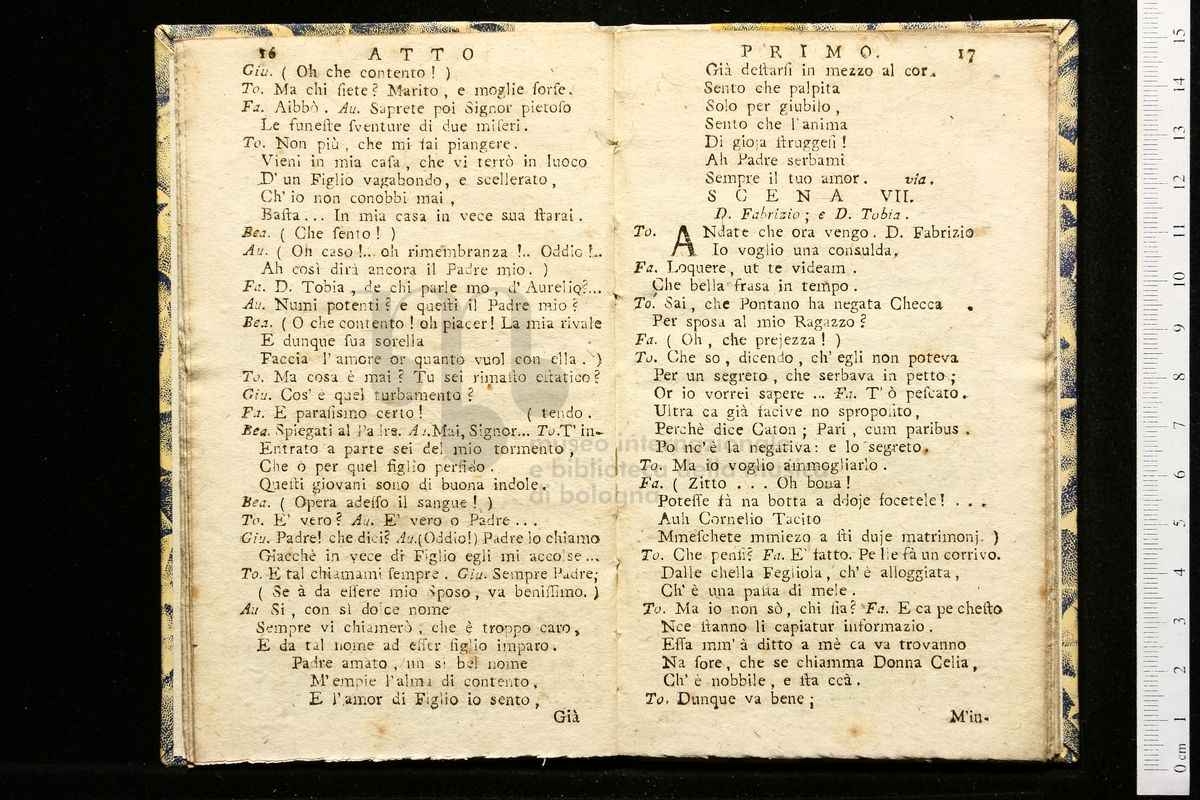 16 ATTO
Giu. ( Oh che contento ! )
To. Ma chi ſiete? Marito, e moglie forſe.
Fa. Aibbò. Au. Saprete poi Signor pietoſo
Le funeſte ſventure di due miſeri.
To. Non più, che mi fai piangere.
Vieni in mia caſa, che vi terrò in luoco
D' un Figlio vagabondo, e scellerato,
Ch' io non conobbi mai.
Baſta... In mia casa in vece sua ſtarai.
Bea. ( Che ſento ! )
Au. ( Oh caso !.. oh rimembranza !.. Oddio !..
Ah così dirà ancora il Padre mio.
Fa. D. Tobia, de chi parle mo, d' Aurelio?...
Au. Numi potenti? e queſti il Padre mio?
Bea. ( O che contento ! oh piacer! La mia rivale
E dunque ſua sorella
Faccia l'amore or quanto vuol con ella. )
To. Ma cosa è mai? Tu sei rimaſto eſtatico?
Giu. Cos' è quel turbamento ?
Fa. E paraſismo certo ! ( tendo.
Bea. Spiegati al Padre. Au. Mai, Signor... To. T' in-
Entrato a parte sei del mio tormento,
Che ò per quel figlio perfido.
Queſti giovani sono di buona indole.
Bea. ( Opera adeſſo il sangue ! )
To. E' vero? Au. E' vero o Padre ...
Giu. Padre! che dici? Au. (Oddio!) Padre io chiamo
Giacchè in vece di Figlio egli mi accolse ...
To. E tal chiamami ſempre Giu. Sempre Padre;
( Se à da eſſere mio Sposo, va beniſſimo. )
Au Si, con sì dolce nome
Sempre vi chiamerò, che è troppo caro,
E da tal nome ad eſſer figlio imparo.
Padre amato, un sì bel nome
M' empie l'alma di contento,
E l'amor di Figlio io sento,
Già
PRIMO. 17
Già deſtarſi in mezzo al cor.
Sento che palpita
Solo per giubilo,
Sento che l'anima
Di gioja ſtruggeſi !
Ah Padre serbami
Sempre il tuo amor. via.
SCENA VII.
D. Fabrizio; e D. Tobia.
To. ANdate che ora vengo. D. Fabrizio
Io voglio una consulda.
Fa. Loquere, ut te videam.
Che bella frasa in tempo.
To. Sai, che Pontano ha negata Checca
Per sposa al mio Ragazzo ?
Fa. ( Oh, che prejezza ! )
To. Che so, dicendo, ch' egli non poteva
Per un segreto, che serbava in petto;
Or io vorrei sapere ... Fa. T' ò peſcato.
Ultra ca già facive no spropoſito,
Perchè dice Caton, Pari, cum paribus.
Po nc' è la negativa: e lo segreto.
To. Ma io voglio ammogliarlo.
Fa. ( Zitto ... Oh bona !
Poteſſe fà na botta a ddoje focetele! ...
Auh Cornelio Tacito
Mmeſchete mmiezo a ſti duje matrimonj. )
To. Che penſi? Fa. E' fatto. Pe lle fà un corrivo.
Dalle chella Fegliola, ch' è alloggiata,
Ch' è una paſta di mele.
To. Ma io non sò, chi ſia? Fa. E ca pe cheſto
Nce ſtanno li capiatur informazio.
Eſſa mm' à ditto a mè ca va trovanno
Na fore, che se chiamma Donna Celia,
Ch' è nobbile, e ſta ccà.
To. Dunque va bene;
M'in-
museo internazionale
e biblioteca della musica
di bologna